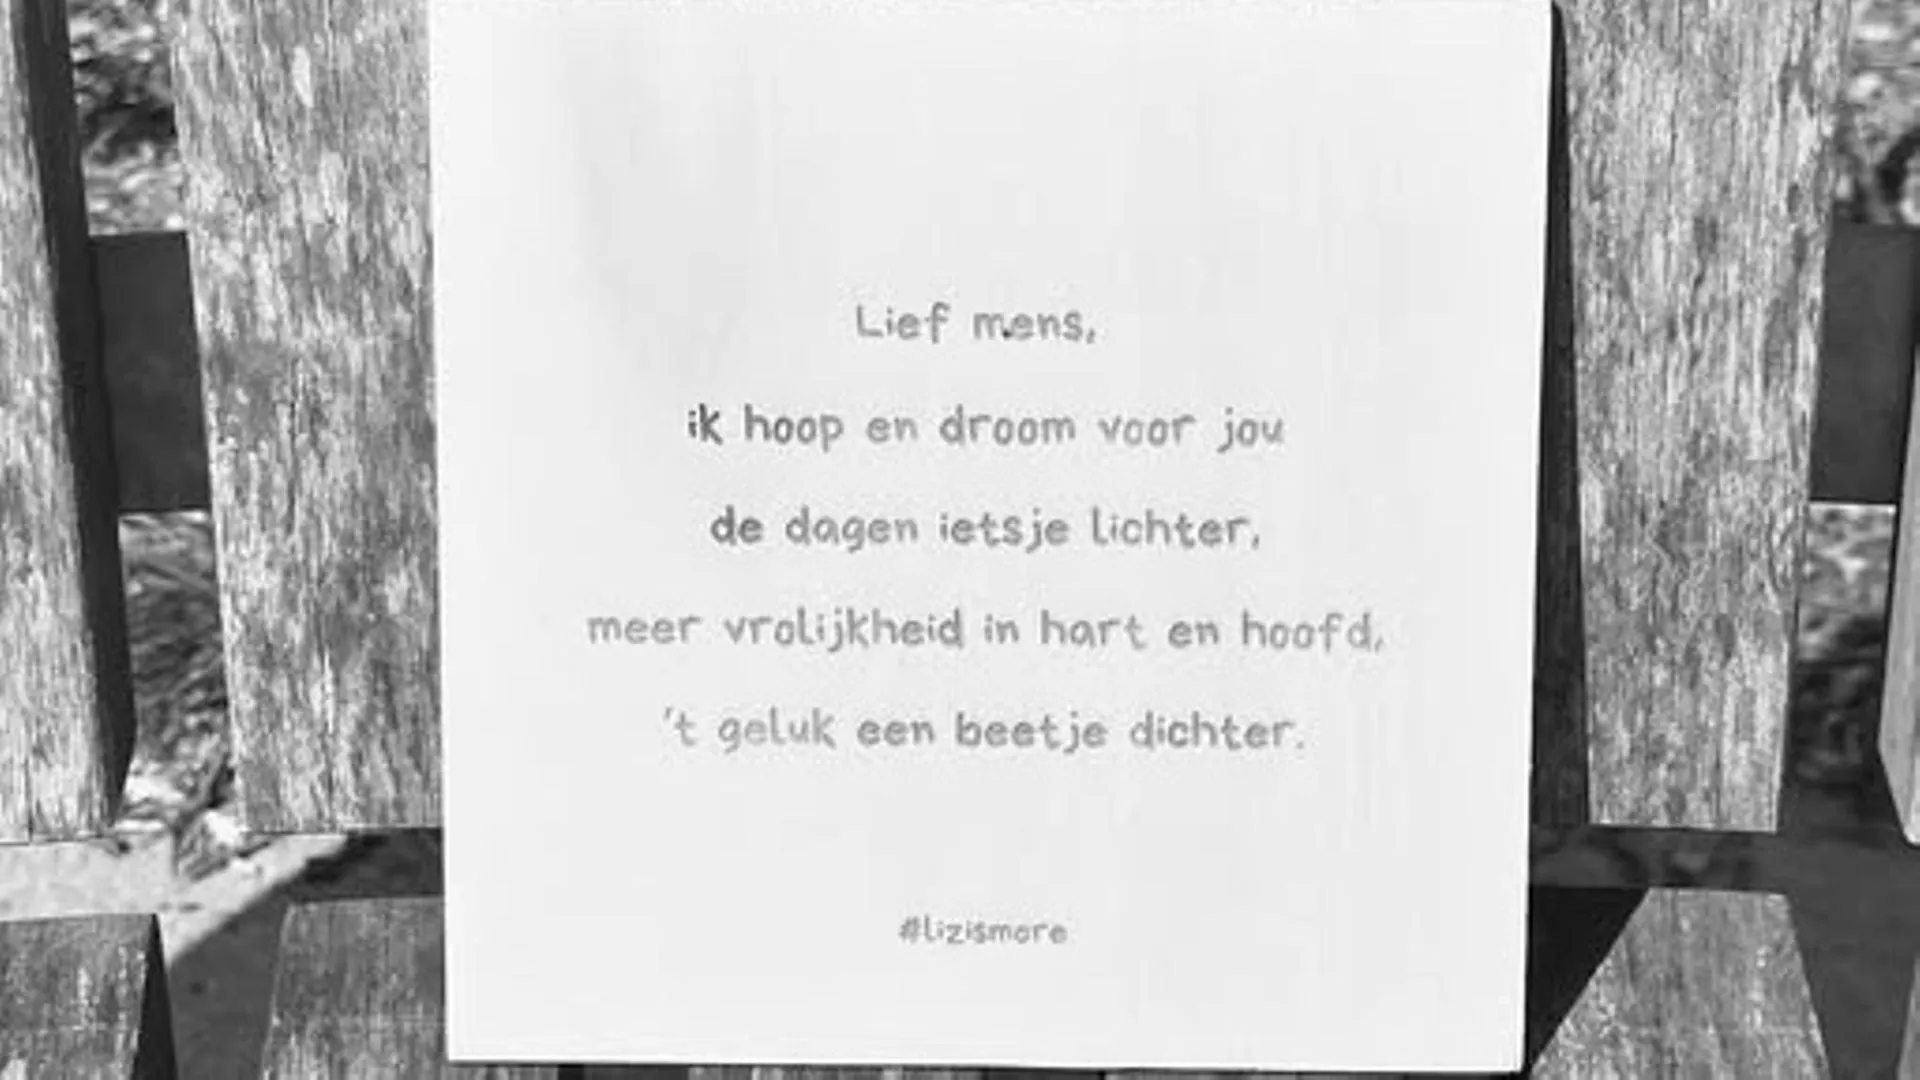 Lief mens,
ik hoop en droom voor jou
de dagen ietsje lichter,
meer vrolijkheid in hart en hoofd,
't geluk een beetje dichter.
#lizismore